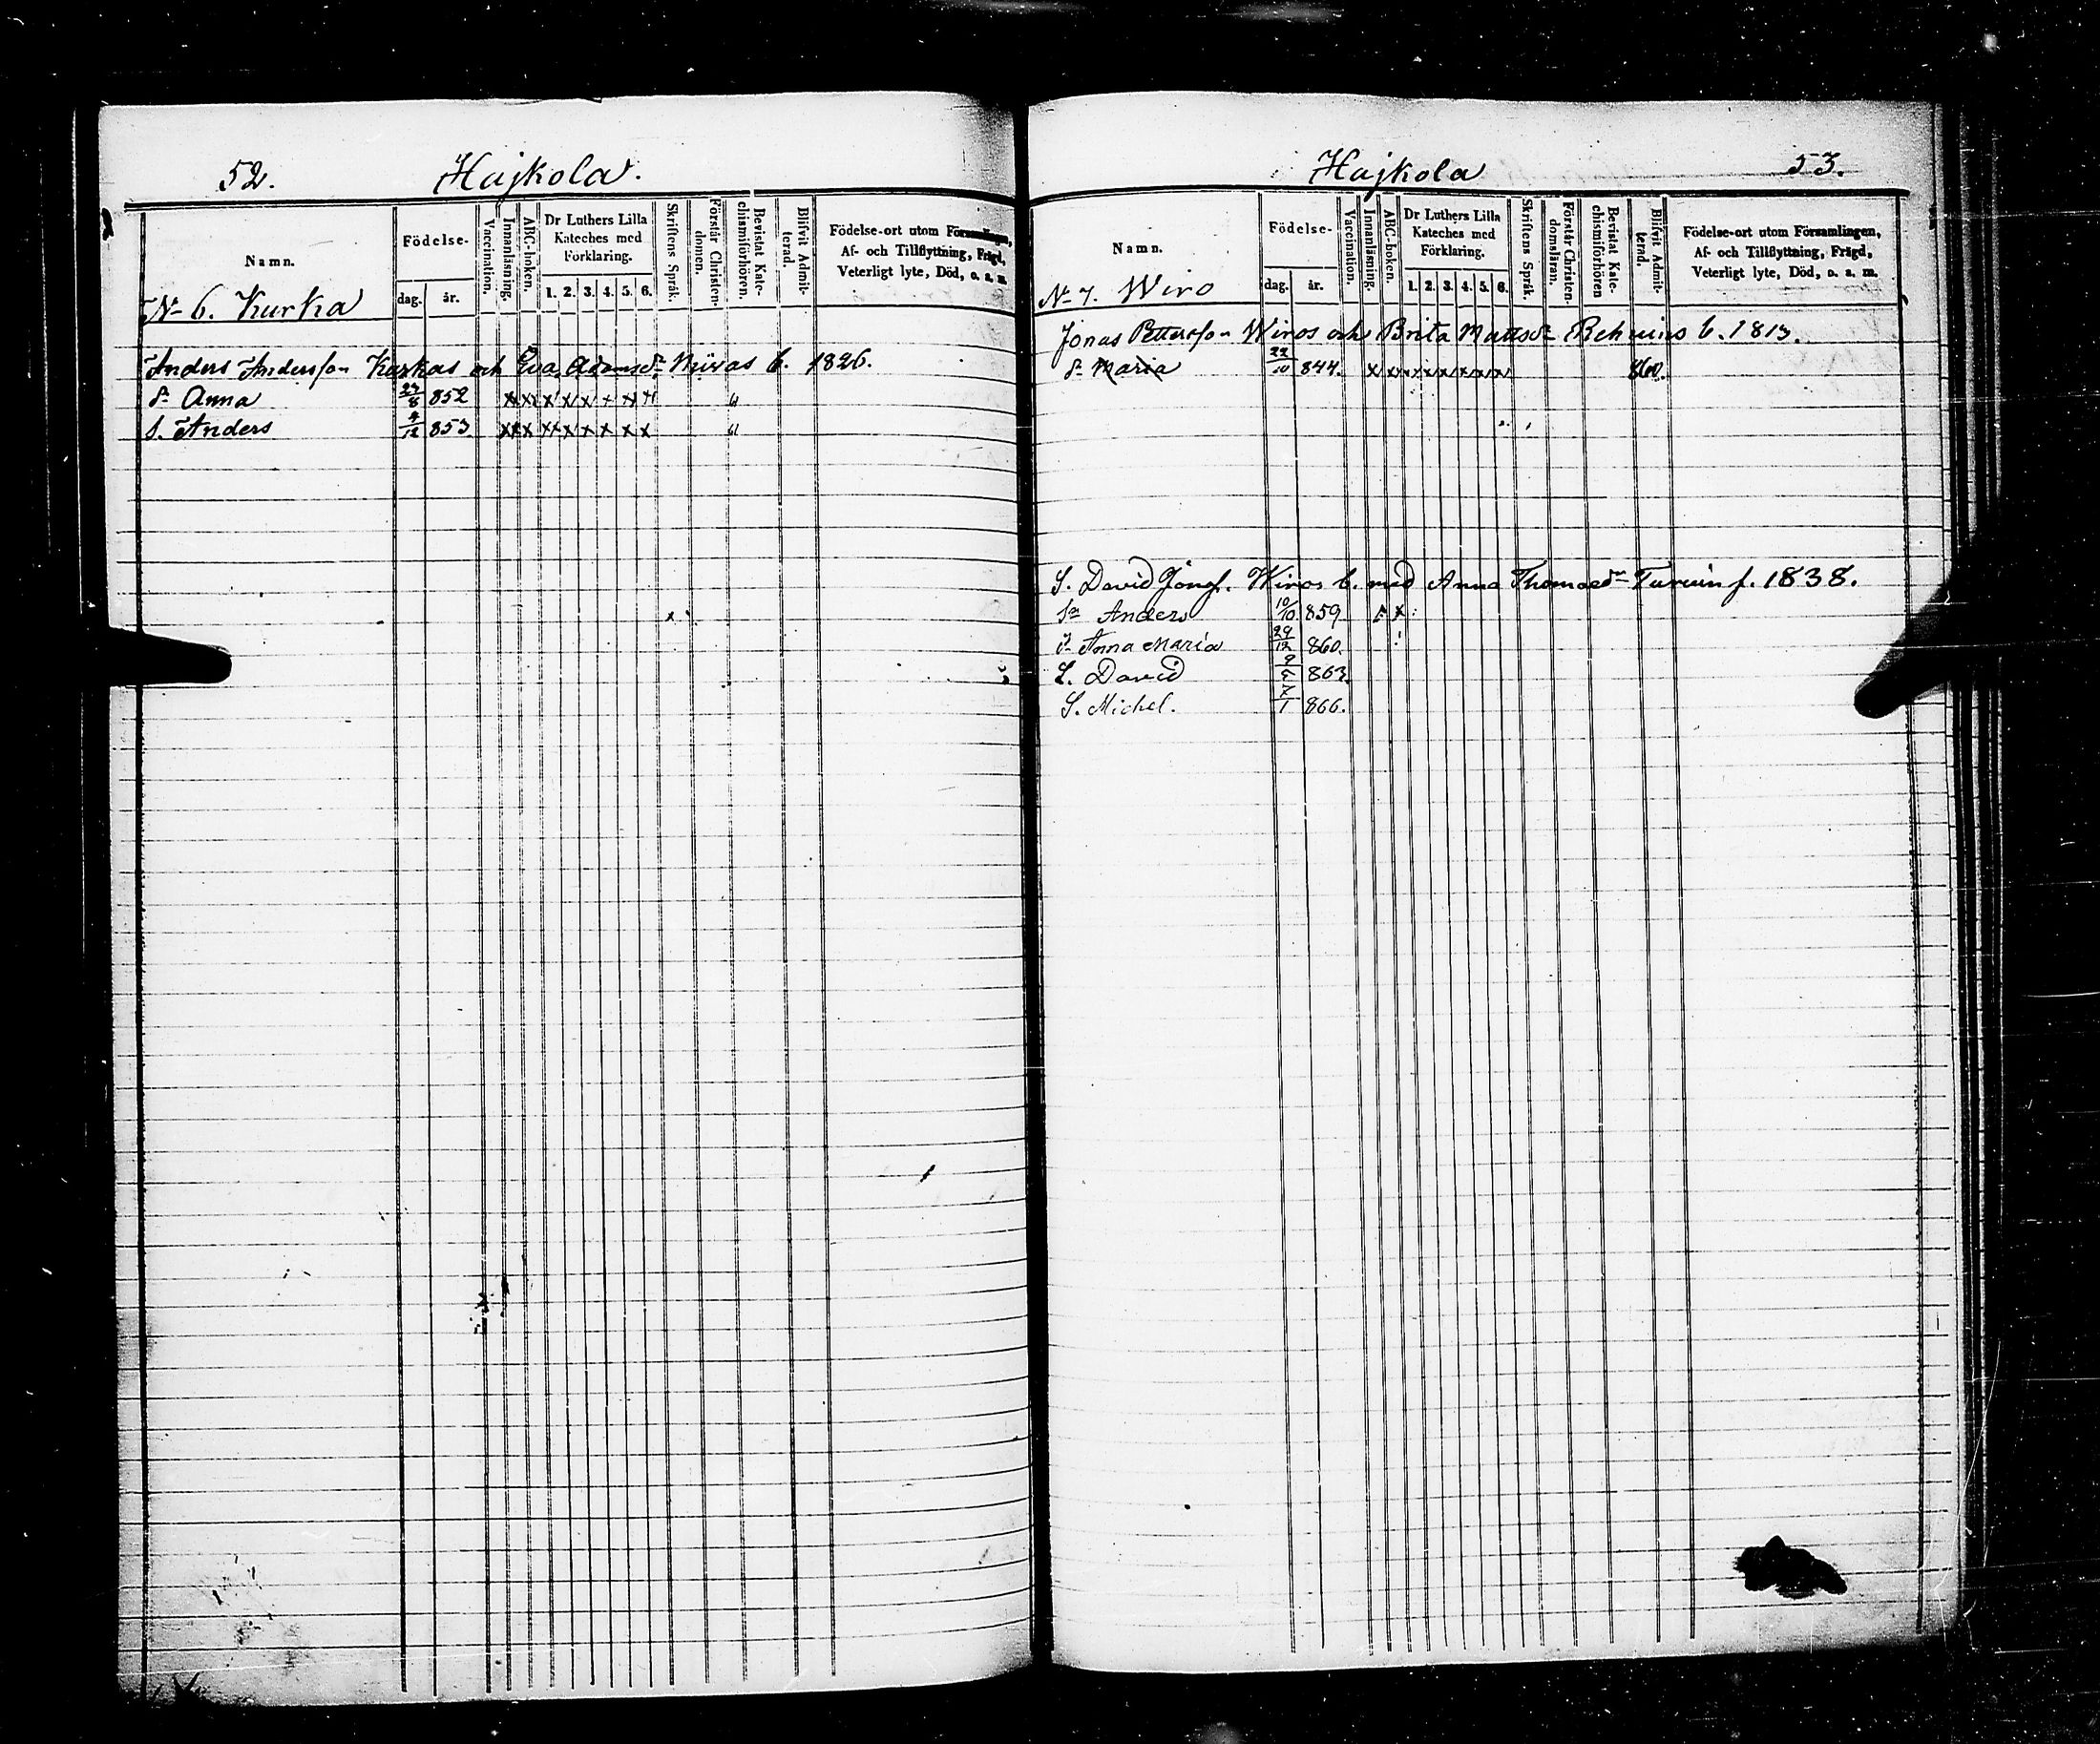 52.
Hajkola.
Namn.
Födelse-
dag.
år.
Vaccination.
Innanläsning.
ABC-boken.
Dr Luthers Lilla
Kateches med
Förklaring.
1. 2. 3. 4. 5. 6.
Skriftens Språk.
Förstår Christen-
domen.
Bevistat Kate-
chismiförhören.
Blifvit Admit-
terad.
Födelse-ort utom Församlingen,
Af- och Tillflyttning, Frägd,
Veterligt lyte, Död, o. a. m.
N- 6. Kurka
Anders Andersson Kurkas och Eva Adamsdr b. 1826.
dr Anna 23/8 852 x x x x x x x x 61
S. Anders 4/12 853. x x x x x x x x x 61
Hajkola
53.
Namn.
Födelse-
dag.
år.
Vaccination.
Innanläsning.
ABC-boken.
Dr Luthers Lilla
Kateches med
Förklaring.
1. 2. 3. 4. 5. 6.
Skriftens Språk.
Förstår Christen-
domsläran.
Bevistat Kate-
chismiförhören
Blifvit Admit-
terad.
Födelse-ort utom Församlingen,
Af- och Tillflyttning, Frägd,
Veterligt lyte, Död, o. a. m.
N- 7. Wiro
Jonas Pettersson Wiros och Brita Mattsdr b. 1813.
dr Maria 22/10 844. x x x x x x x x 860.
S. David Jonass. Wiros b. med Anna Thomasdr f. 1838.
Sn Anders 10/10 859 x
Anna Maria 29/12 860.
S. David 863.
S. Michel. 7/1 866.